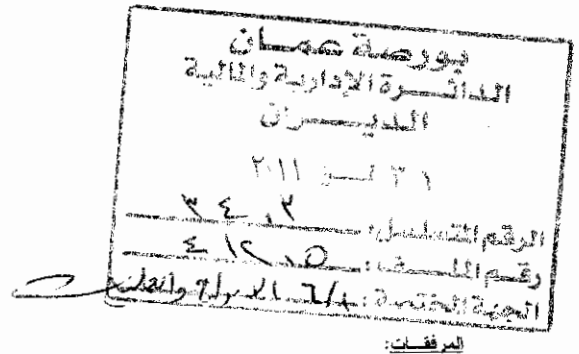 بورصة عمان
الدائرة الإدارية والمالية
الديوان
٢٠١١
الرقم المتسلسل: ٣٤٠٢
رقم الملف: ٤١٢٠٥
الجهة المختصة:
المرفقات: